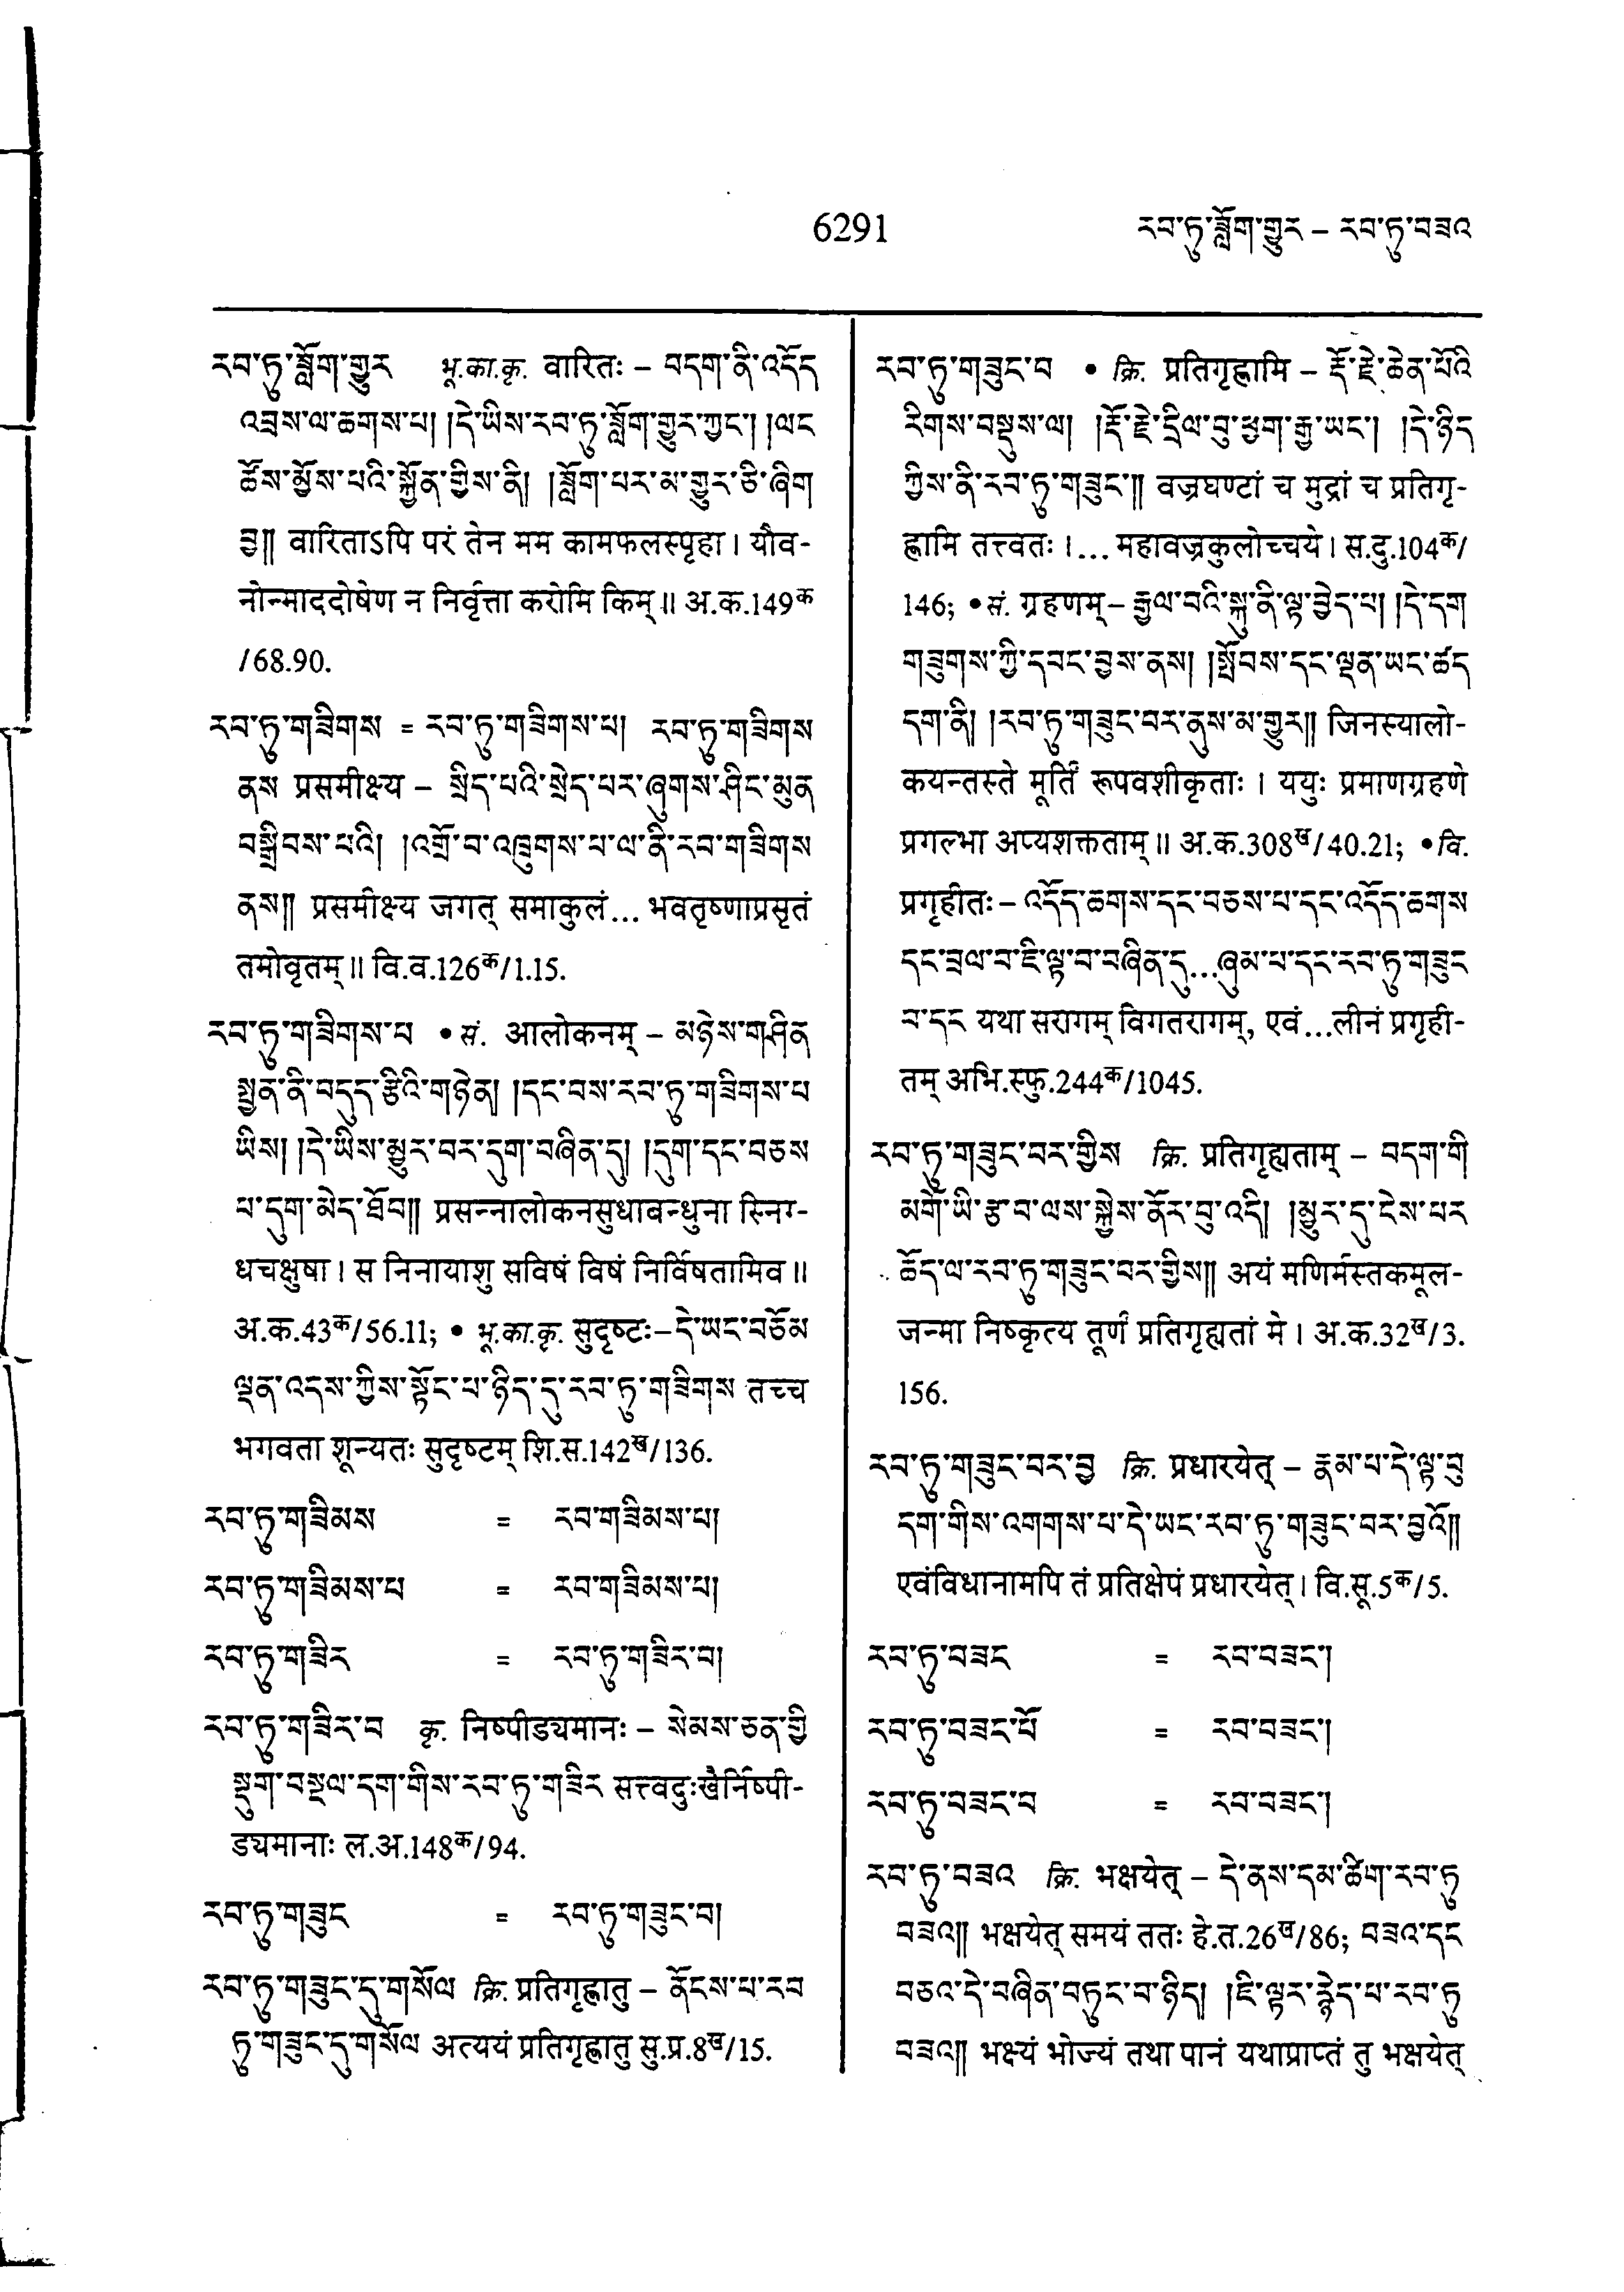 6291
རབ་ཏུ་བློག་གྱུར – རབ་ཏུ་བཟའ
རབ་ཏུ་བློག་གྱུར भू.का.कृ. वारितः – བདག་ནི་འདོད
འབྲས་ལ་ཆགས་པ། །དེ་ཡིས་རབ་ཏུ་བློག་གྱུར་ཀྱང་། །ལང
ཚོས་མྱོས་པའི་སྐྱོན་གྱིས་ནི། །བློག་པར་མ་གྱུར་ཅི་ཞིག
བྱ།། वारिताऽपि परं तेन मम कामफलस्पृहा। यौव-
नोन्माददोषेण न निर्वृत्ता करोमि किम्॥ अ.क.149क
/68.90.
རབ་ཏུ་གཟིགས = རབ་ཏུ་གཟིགས་པ། རབ་ཏུ་གཟིགས
ནས प्रसमीक्ष्य – སྲིད་པའི་སྲེད་པར་ཞུགས་ཤིང་མུན
བསྒྲིབས་པའི། །འགྲོ་བ་འཁྲུགས་པ་ལ་ནི་རབ་གཟིགས
ནས།། प्रसमीक्ष्य जगत् समाकुलं... भवतृष्णाप्रसृतं
तमोवृतम्॥ वि.व.126क/1.15.
རབ་ཏུ་གཟིགས་པ • सं. आलोकनम् – མཉེས་གཤིན
སྤྱན་ནི་བདུད་རྩིའི་གཉེན། །དང་བས་རབ་ཏུ་གཟིགས་པ
ཡིས། །དེ་ཡིས་མྱུར་བར་དུག་བཞིན་དུ། །དུག་དང་བཅས
པ་དུག་མེད་ཐོབ།། प्रसन्नालोकनसुधाबन्धुना स्निग-
धचक्षुषा। स निनायाशु सविषं विषं निर्विषतामिव॥
अ.क.43क/56.11; • भू.का.कृ. सुदृष्टः–དེ་ཡང་བཅོམ
ལྡན་འདས་ཀྱིས་སྟོང་པ་ཉིད་དུ་རབ་ཏུ་གཟིགས तच्च
भगवता शून्यतः सुदृष्टम् शि.स.142ख/136.
རབ་ཏུ་གཟིམས = རབ་གཟིམས་པ།
རབ་ཏུ་གཟིམས་པ = རབ་གཟིམས་པ།
རབ་ཏུ་གཟིར = རབ་ཏུ་གཟིར་བ།
རབ་ཏུ་གཟིར་བ कृ. निष्पीड्यमानः – སེམས་ཅན་གྱི
སྡུག་བསྔལ་དག་གིས་རབ་ཏུ་གཟིར सत्त्वदुःखैर्निष्पी-
ड्यमानाः ल.अ.148क/94.
རབ་ཏུ་གཟུང = རབ་ཏུ་གཟུང་བ།
རབ་ཏུ་གཟུང་དུ་གསོལ क्रि. प्रतिगृह्णातु – ནོངས་པ་རབ
ཏུ་གཟུང་དུ་གསོལ अत्ययं प्रतिगृह्णातु सु.प्र.8ख/15.
རབ་ཏུ་གཟུང་བ • क्रि. प्रतिगृह्णामि – རྡོ་རྗེ་ཆེན་པོའི
རིགས་བསྡུས་ལ། །རྡོ་རྗེ་དྲིལ་བུ་ཕྱག་རྒྱ་ཡང་། །དེ་ཉིད
ཀྱིས་ནི་རབ་ཏུ་གཟུང་།། वज्रघण्टां च मुद्रां च प्रतिगृ-
ह्णामि तत्त्वतः।... महावज्रकुलोच्चये। स.दु.104क/
146; • सं. ग्रहणम्– རྒྱལ་བའི་སྐུ་ནི་ལྟ་བྱེད་པ། །དེ་དག
གཟུགས་ཀྱི་དབང་བྱས་ནས། །སྤོབས་དང་ལྡན་ཡང་ཚད
དག་ནི། །རབ་ཏུ་གཟུང་བར་ནུས་མ་གྱུར།། जिनस्यालो-
कयन्तस्ते मूर्तिं रूपवशीकृताः। ययुः प्रमाणग्रहणे
प्रगल्भा अप्यशक्तताम्॥ अ.क.308ख/40.21; • वि.
प्रगृहीतः – འདོད་ཆགས་དང་བཅས་པ་དང་འདོད་ཆགས
དང་བྲལ་བ་ཇི་ལྟ་བ་བཞིན་དུ...ཞུམ་པ་དང་རབ་ཏུ་གཟུང
བ་དང यथा सरागम् विगतरागम्, एवं...लीनं प्रगृही-
तम् अभि.स्फु.244क/1045.
རབ་ཏུ་གཟུང་བར་གྱིས क्रि. प्रतिगृह्यताम् – བདག་གི
མགོ་ཡི་རྩ་བ་ལས་སྐྱེས་ནོར་བུ་འདི། །མྱུར་དུ་ངེས་པར
ཆོད་ལ་རབ་ཏུ་གཟུང་བར་གྱིས།། अयं मणिर्मस्तकमूल-
जन्मा निष्कृत्य तूर्णं प्रतिगृह्यतां मे। अ.क.32ख/3.
156.
རབ་ཏུ་གཟུང་བར་བྱ क्रि. प्रधारयेत् – རྣམ་པ་དེ་ལྟ་བུ
དག་གིས་འགགས་པ་དེ་ཡང་རབ་ཏུ་གཟུང་བར་བྱའོ།།
एवंविधानामपि तं प्रतिक्षेपं प्रधारयेत्। वि.सू.5क/5.
རབ་ཏུ་བཟང = རབ་བཟང་།
རབ་ཏུ་བཟང་པོ = རབ་བཟང་།
རབ་ཏུ་བཟང་བ = རབ་བཟང་།
རབ་ཏུ་བཟའ क्रि. भक्षयेत् – དེ་ནས་དམ་ཚིག་རབ་ཏུ
བཟའ།། भक्षयेत् समयं ततः हे.त.26ख/86; བཟའ་དང
བཅའ་དེ་བཞིན་བཏུང་བ་ཉིད། །ཇི་ལྟར་རྙེད་པ་རབ་ཏུ
བཟའ།། भक्ष्यं भोज्यं तथा पानं यथाप्राप्तं तु भक्षयेत्